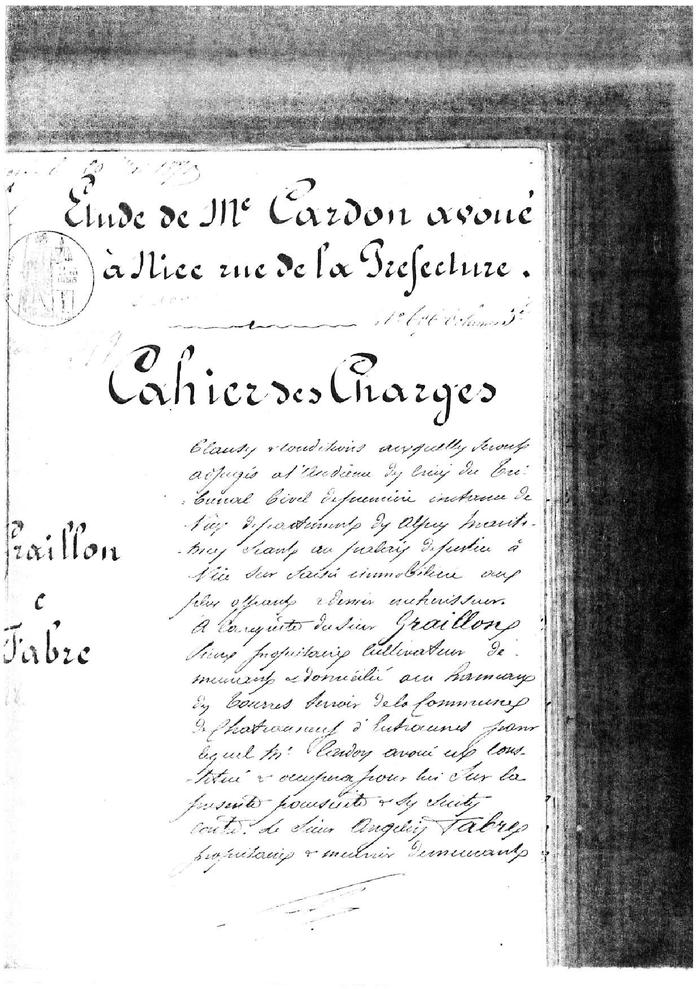 Etude de Me Cardon avoué
à Nice rue de la Prefecture.
Cahier des Charges
Graillon
c
Fabre
Clauses & conditions auxquelles seront
adjugés a l'audience des criées du Tri-
bunal Civil de première instance de
Nice département des Alpes Marit-
-imes séant au palais de justice à
Nice sur saisie immobilière aux
plus offrants & dernier enchérisseur.
A la requête du sieur Graillon
propriétaire cultivateur de-
meurant & domicilié au hameau
des Tourres terroir de la Commune
de Chateauneuf d'Entraunes pour
lequel Me Cardon avoué est cons-
-titué & occupera pour lui sur la
présente poursuite & ses suites
contre le sieur Fabre
propriétaire & meunier demeurant